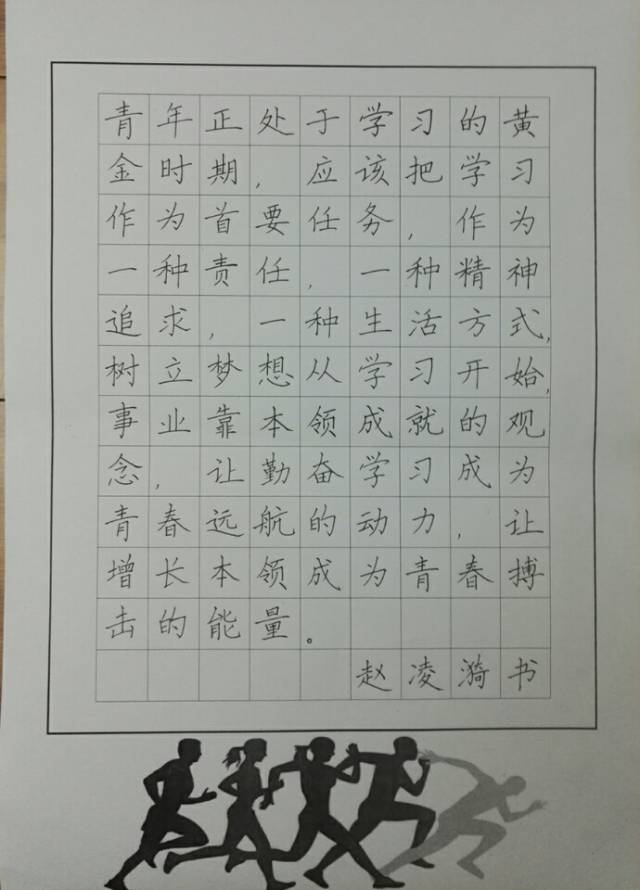 青年正处于学习的黄
金时期，应该把学习
作为首要任务，作为
一种责任，一种精神
追求，一种生活方式，
树立梦想从学习开始，
事业靠本领成就的观
念，让勤奋学习成为
青春远航的动力，让
增长本领成为青春搏
击的能量。
赵凌漪书